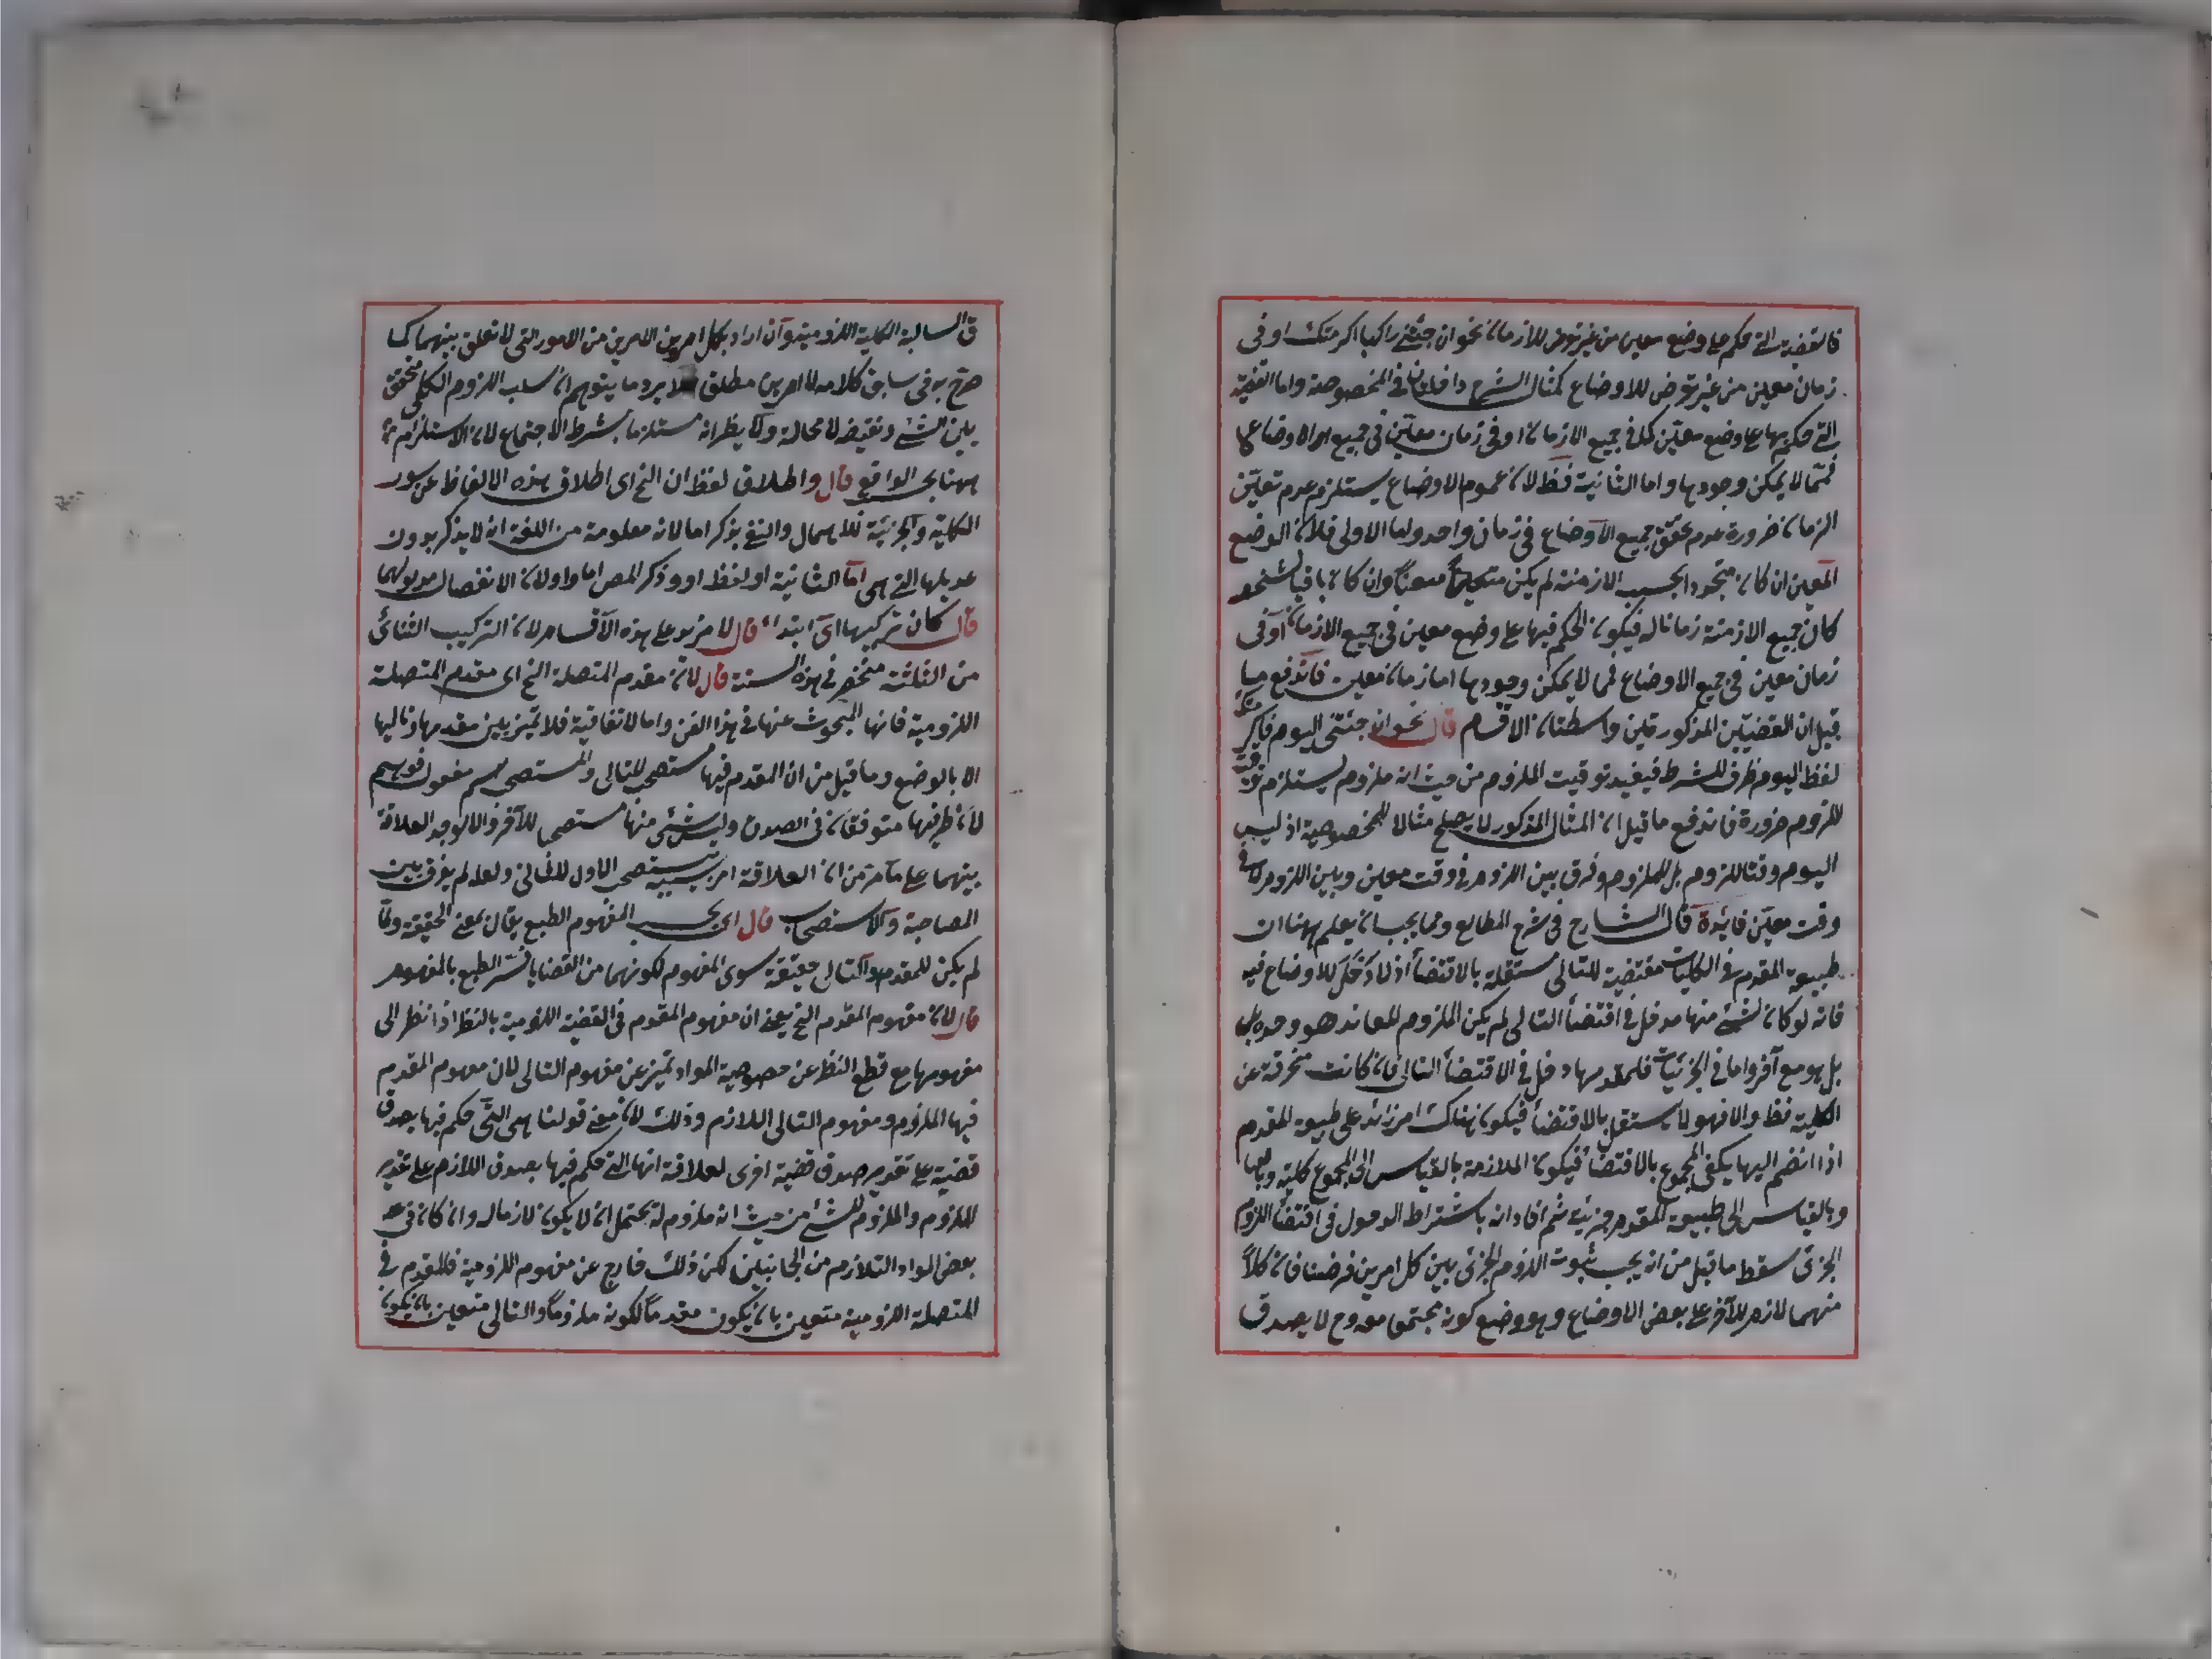 فالقضية التى حكم على وضع معين من غير تعرض للازمان نحو ان جئتنى راكبا اكرمتك او فى
زمان معين من غير تعرض للاوضاع كمثال الشرح داخلتان فى المخصوصة واما القضية
التى حكم بها على وضع معين كل فى جميع الازمان او فى زمان معين فى جميع الاوضاع
فمما لا يمكن وجودها واما الثانية فظ لان عموم الاوضاع يستلزم عدم تعين
الزمان ضرورة عدم تحقق جميع الاوضاع فى زمان واحد واما الاولى فلان الوضع
المعين ان كان متجددا بحسب الازمنة لم يكن معينا وان كان باقيا
كان جميع الازمنة زمانا له فيكون الحكم فيها على وضع معين فى جميع الازمان او فى
زمان معين فى جميع الاوضاع مما لا يمكن وجودها اما زمان معين فاندفع ما
قيل ان القضيتين المذكورتين واسطتان الاقسام قال نحو ان جئتنى اليوم فاكرمتك
لفظ اليوم ظرف للشرط فيفيد توقيت الملزوم من حيث انه ملزوم يستلزم توقيت
اللزوم ضرورة فاندفع ما قيل ان المثال المذكور لا يصلح مثالا للمخصوصية اذ ليس
اليوم وقتا للزوم بل للملزوم وفرق بين اللزوم فى وقت معين وبين اللزوم فى
وقت معين فائدة قال الشارح فى شرح المطالع ومما يجب ان يعلم ههنا ان
طبيعة المقدم فى الكليات مقتضية للتالى مستقلة بالاقتضاء اذ لا دخل للاوضاع فيه
فانه لو كان لشئ منها مدخل فى اقتضاء التالى لم يكن الملزوم المعاند هو وحده بل
بل هو مع آخر واما فى الجزئيات فلمقدمها دخل فى الاقتضاء التالى فان كانت منحرفة عن
الكلية فظ والا فهو لا يستقل بالاقتضاء فيكون هناك امر زائد على طبيعة المقدم
اذا انضم اليها يكفى المجموع بالاقتضاء فيكون الملازمة بالقياس الى المجموع كلية
وبالقياس الى طبيعة المقدم جزئية ثم افاد انه باشتراط الدخول فى اقتضاء اللزوم
الجزئى سقط ما قيل من انه يجب ثبوت اللزوم الجزئى بين كل امرين فرضنا فان كلا
منهما لازم للآخر على بعض الاوضاع وهو وضع كونه مجتمعا معه وح لا يصدق
ق السالبة الكلية اللزومية وان اراد بكل امرين الامرين من الامور التى لا تعلق بينهما كما
صرح به فى سابق كلامه لا امرين مطلق فلا يرد ما يتوهم ان سلب اللزوم الكلى متحقق
بين الشئ ونقيضه لا محالة ولا يظر انه مستلزما بشرط الاجتماع لان الاستلزام
ههنا بحسب الواقع قال واطلاق لفظ ان الخ اى اطلاق هذه الالفاظ عن سور
الكلية والجزئية للاهمال والنفى يذكر اما لانه معلومة من اللغة انه لا يذكر بدون
عديلها التى هى اما الثانية او لفظ او وذكر المص اما واولا لان الانفصال مدلولهما
قال كان تركيبها اى ابتداء قال لا مزيد على هذه الاقسام لان التركيب الثنائى
من الثلثة منحصر فى هذه الستة قال لان مقدم المتصلة الخ اى مقدم المتصلة
اللزومية فانها المبحوث عنها فى هذا الفن واما الاتفاقية فلا تميز بين مقدمها وتاليها
الا بالوضع وما قيل من ان المقدم فيها مستصحب للتالى والمستصحب اسم مفعول فوهم
لان طرفيها متوفقان فى الصدق وليس شئ منها مستصحبا للآخر والا لوجد العلاقة
بينهما على ما مر من ان العلاقة امر بسببه يستصحب الاول للثانى ولعله لم يفرق بين
المصاحبة والاستصحاب قال اى بحسب المفهوم الطبع يقال بمعنى الحقيقة ولما
لم يكن للمقدم والتالى حقيقة سوى المفهوم لكونهما من القضايا فسر الطبع بالمفهوم
قال لان مفهوم المقدم الخ يعنى ان مفهوم المقدم فى القضية اللزومية بالنظر اذا نظر الى
مفهومها مع قطع النظر عن خصوصية المواد تميز عن مفهوم التالى لان مفهوم المقدم
فيها الملزوم ومفهوم التالى اللازم وذلك لان معنى قولنا هى التى حكم فيها بصدق
قضية على تقدير صدق قضية اخرى لعلاقة انها التى حكم فيها بصدق اللازم على تقدير
الملزوم والملزوم للشئ من حيث انه ملزوم له يحتمل ان لا يكون لازما له وان كان فى
بعض المواد التلازم من الجانبين لكن ذلك خارج عن مفهوم اللزومية فالمقدم فى
المتصلة اللزومية متعين بان يكون مقدما لكونه ملزوما والتالى متعين بان يكون